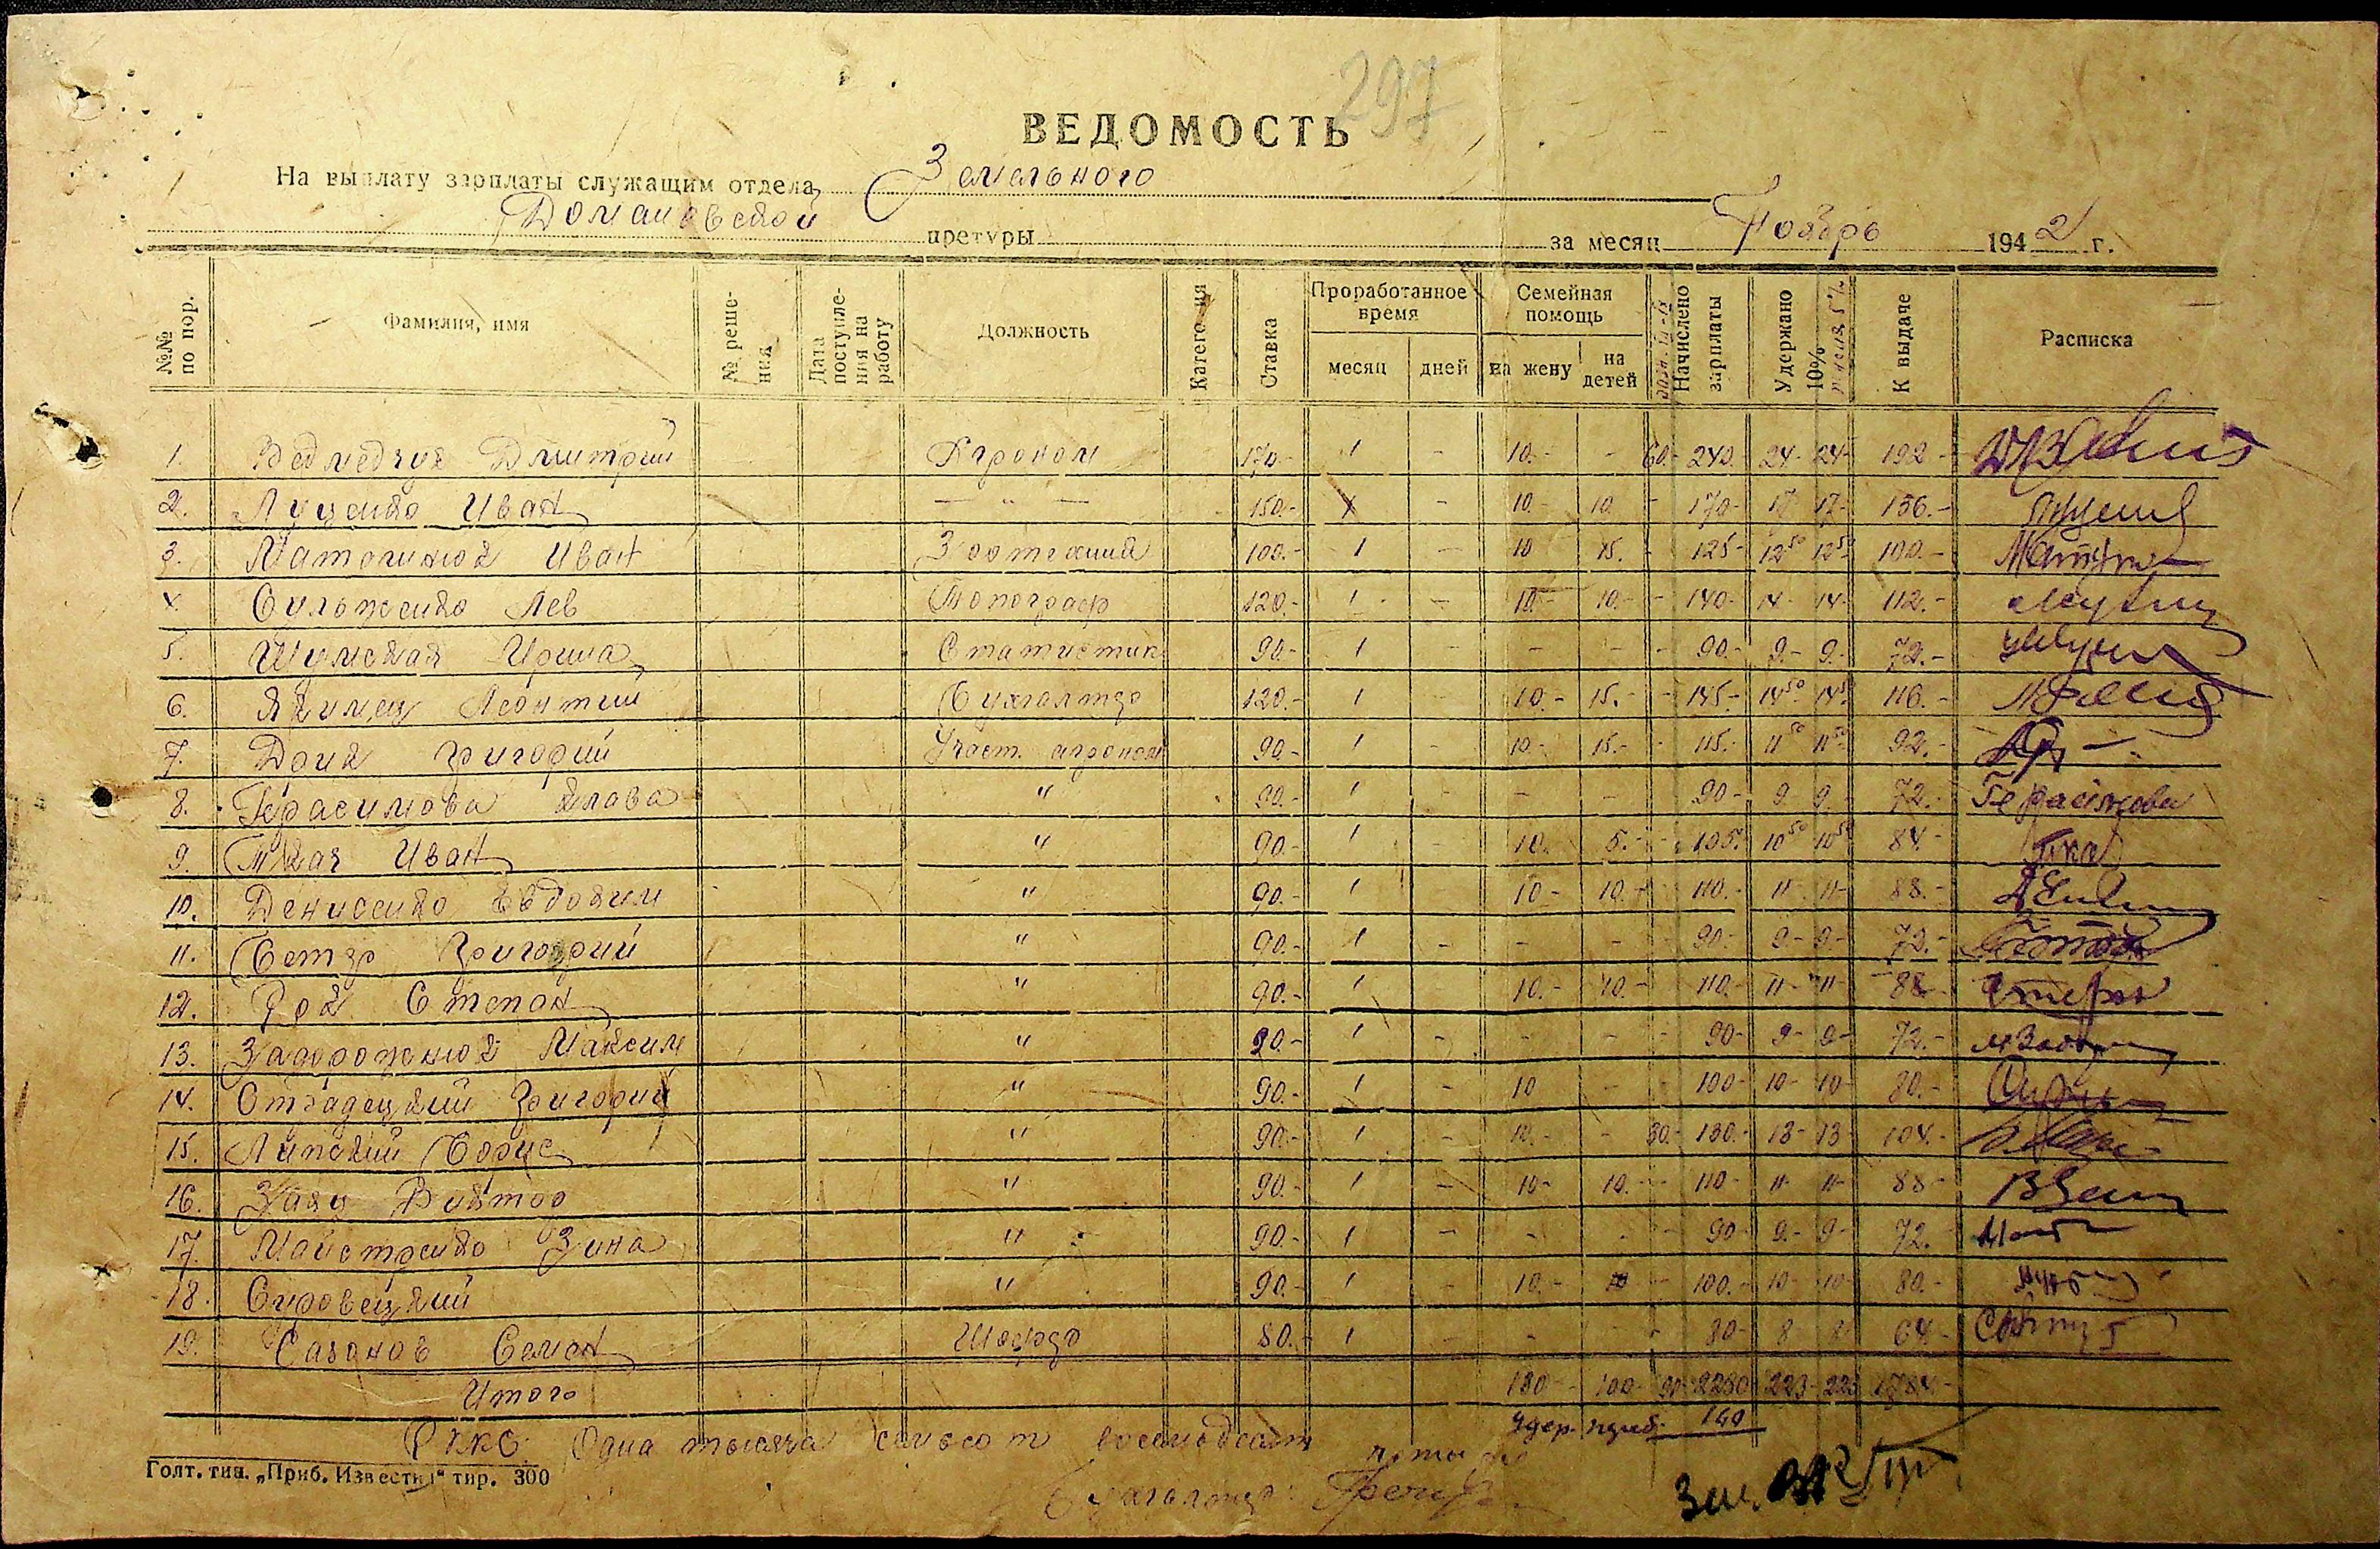 297
ВЕДОМОСТЬ
На выплату зарплаты служащим отдела Земельного
Домановской претуры за месяц Ноябрь 1942 г.
№№ по пор. Фамилия, имя № реше-ния Дата поступле-ния на работу Должность Катего-ия Ставка Проработанное время месяц дней Семейная помощь на жену на детей Начислено зарплаты Удержано 10% 5% К выдаче Расписка
1. Ведмедчук Дмитрий Агроном 170.- 1 - 10.- - 60.- 240. 24- 24- 192-
2. Луценко Иван — " — 150.- 1 - 10.- 10. - 170- 17 17- 136.-
3. Иван Зоотехник 100.- 1 - 10 15. - 125- 12⁵⁰ 12⁵⁰ 100.-
4. Лев Топограф 120.- 1 - 10.- 10.- - 140- 14- 14- 112.-
5. Шумская Ирина Статистик 90.- 1 - - - - 90.- 9.- 9.- 72.-
6. Якимец Леонтий Бухгалтер 120.- 1 - 10.- 15.- - 145- 14⁵⁰ 14⁵⁰ 116.-
7. Доик Григорий Участ. агроном 90.- 1 - 10.- 15.- - 115.- 11⁵⁰ 11⁵⁰ 92.-
8. Герасимова Клава " 90.- 1 - - - - 90- 9- 9- 72.- Герасимова
9. Ткач Иван " 90.- 1 - 10. 5.- - 105. 10⁵⁰ 10⁵⁰ 84.- Ткач
10. Денисенко Евдоким " 90.- 1 - 10- 10.- - 110.- 11- 11- 88.-
11. Бетэр Григорий " 90.- 1 - - - - 90- 9- 9- 72.-
12. Рок Степан " 90.- 1 - 10.- 10.- - 110.- 11- 11- 88-
13. Задорожнюк Максим " 90.- 1 - - - - 90- 9- 9- 72.-
14. Отрадецкий Григорий " 90.- 1 - 10 - - 100- 10- 10- 80.-
15. Липский Борис " 90.- 1 - 10.- - 30- 130.- 13- 13 104.-
16. Заяц Виктор " 90.- 1 - 10- 10.- - 110- 11- 11- 88-
17. Майстренко Зина " 90.- 1 - - - - 90- 9.- 9- 72.-
18. Суровецкий " 90.- 1 - 10.- - 100.- 10- 10- 80.-
19. Сазонов Семен Шофер 80.- 1 - - - - 80- 8 8 64-
Итого 100- 90- 2230 223- 223 1784.-
Удер. 140
РККС Одна тысяча семьсот восемьдесят
Голт. тип. „Приб. Известия" тир. 300
Бухгалтер: